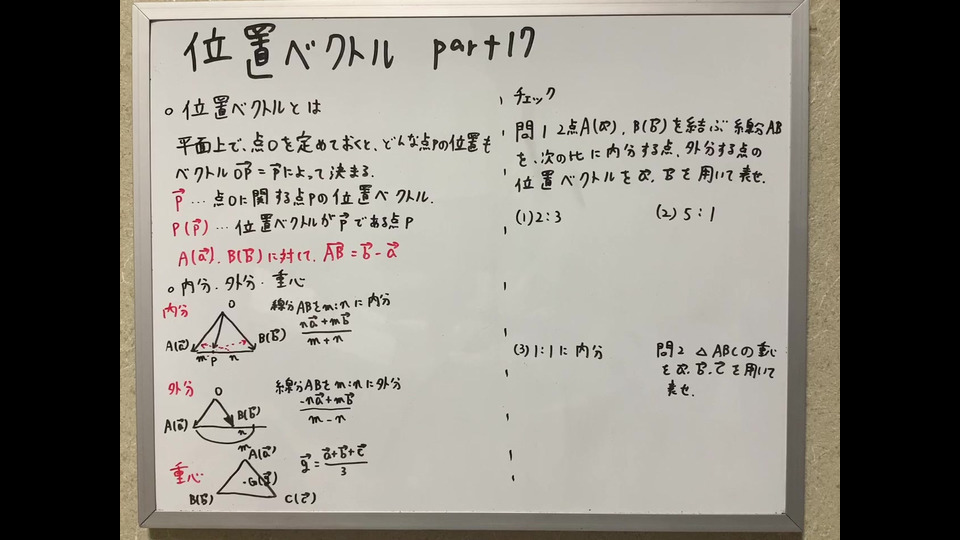 位置ベクトル part17
○ 位置ベクトルとは
平面上で、点Oを定めておくと、どんな点Pの位置も
ベクトル OP→ = p→ によって決まる.
p→ … 点Oに関する点Pの位置ベクトル.
P(p→) … 位置ベクトルが p→ である点P
A(a→). B(b→) に対して. AB→ = b→ - a→
○ 内分. 外分. 重心
内分
O
A(a→)
B(b→)
m
P
n
線分ABをm:nに内分
na→+mb→
m+n
外分
O
A(a→)
B(b→)
n
m
線分ABをm:nに外分
-na→+mb→
m-n
重心
A(a→)
G(g→)
B(b→)
C(c→)
g→ = a→+b→+c→
3
チェック
問1 2点A(a→). B(b→)を結ぶ線分AB
を、次の比に内分する点、外分する点の
位置ベクトルをa→. b→を用いて表せ.
(1) 2:3
(2) 5:1
(3) 1:1 に 内分
問2 △ABCの重心
をa→. b→. c→を用いて
表せ.